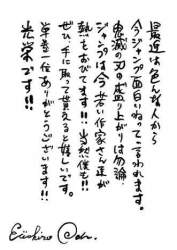 最近は色んな人から
今ジャンプ面白いねって言われます。
鬼滅の刃の盛り上がりは勿論
ジャンプは今若い作家さん達が
熱をおびてます!!当然僕も!!
ぜひ、手に取って貰えると嬉しいです。
単巻一位ありがとうございます
光栄です!!
Eiichiro Oda.